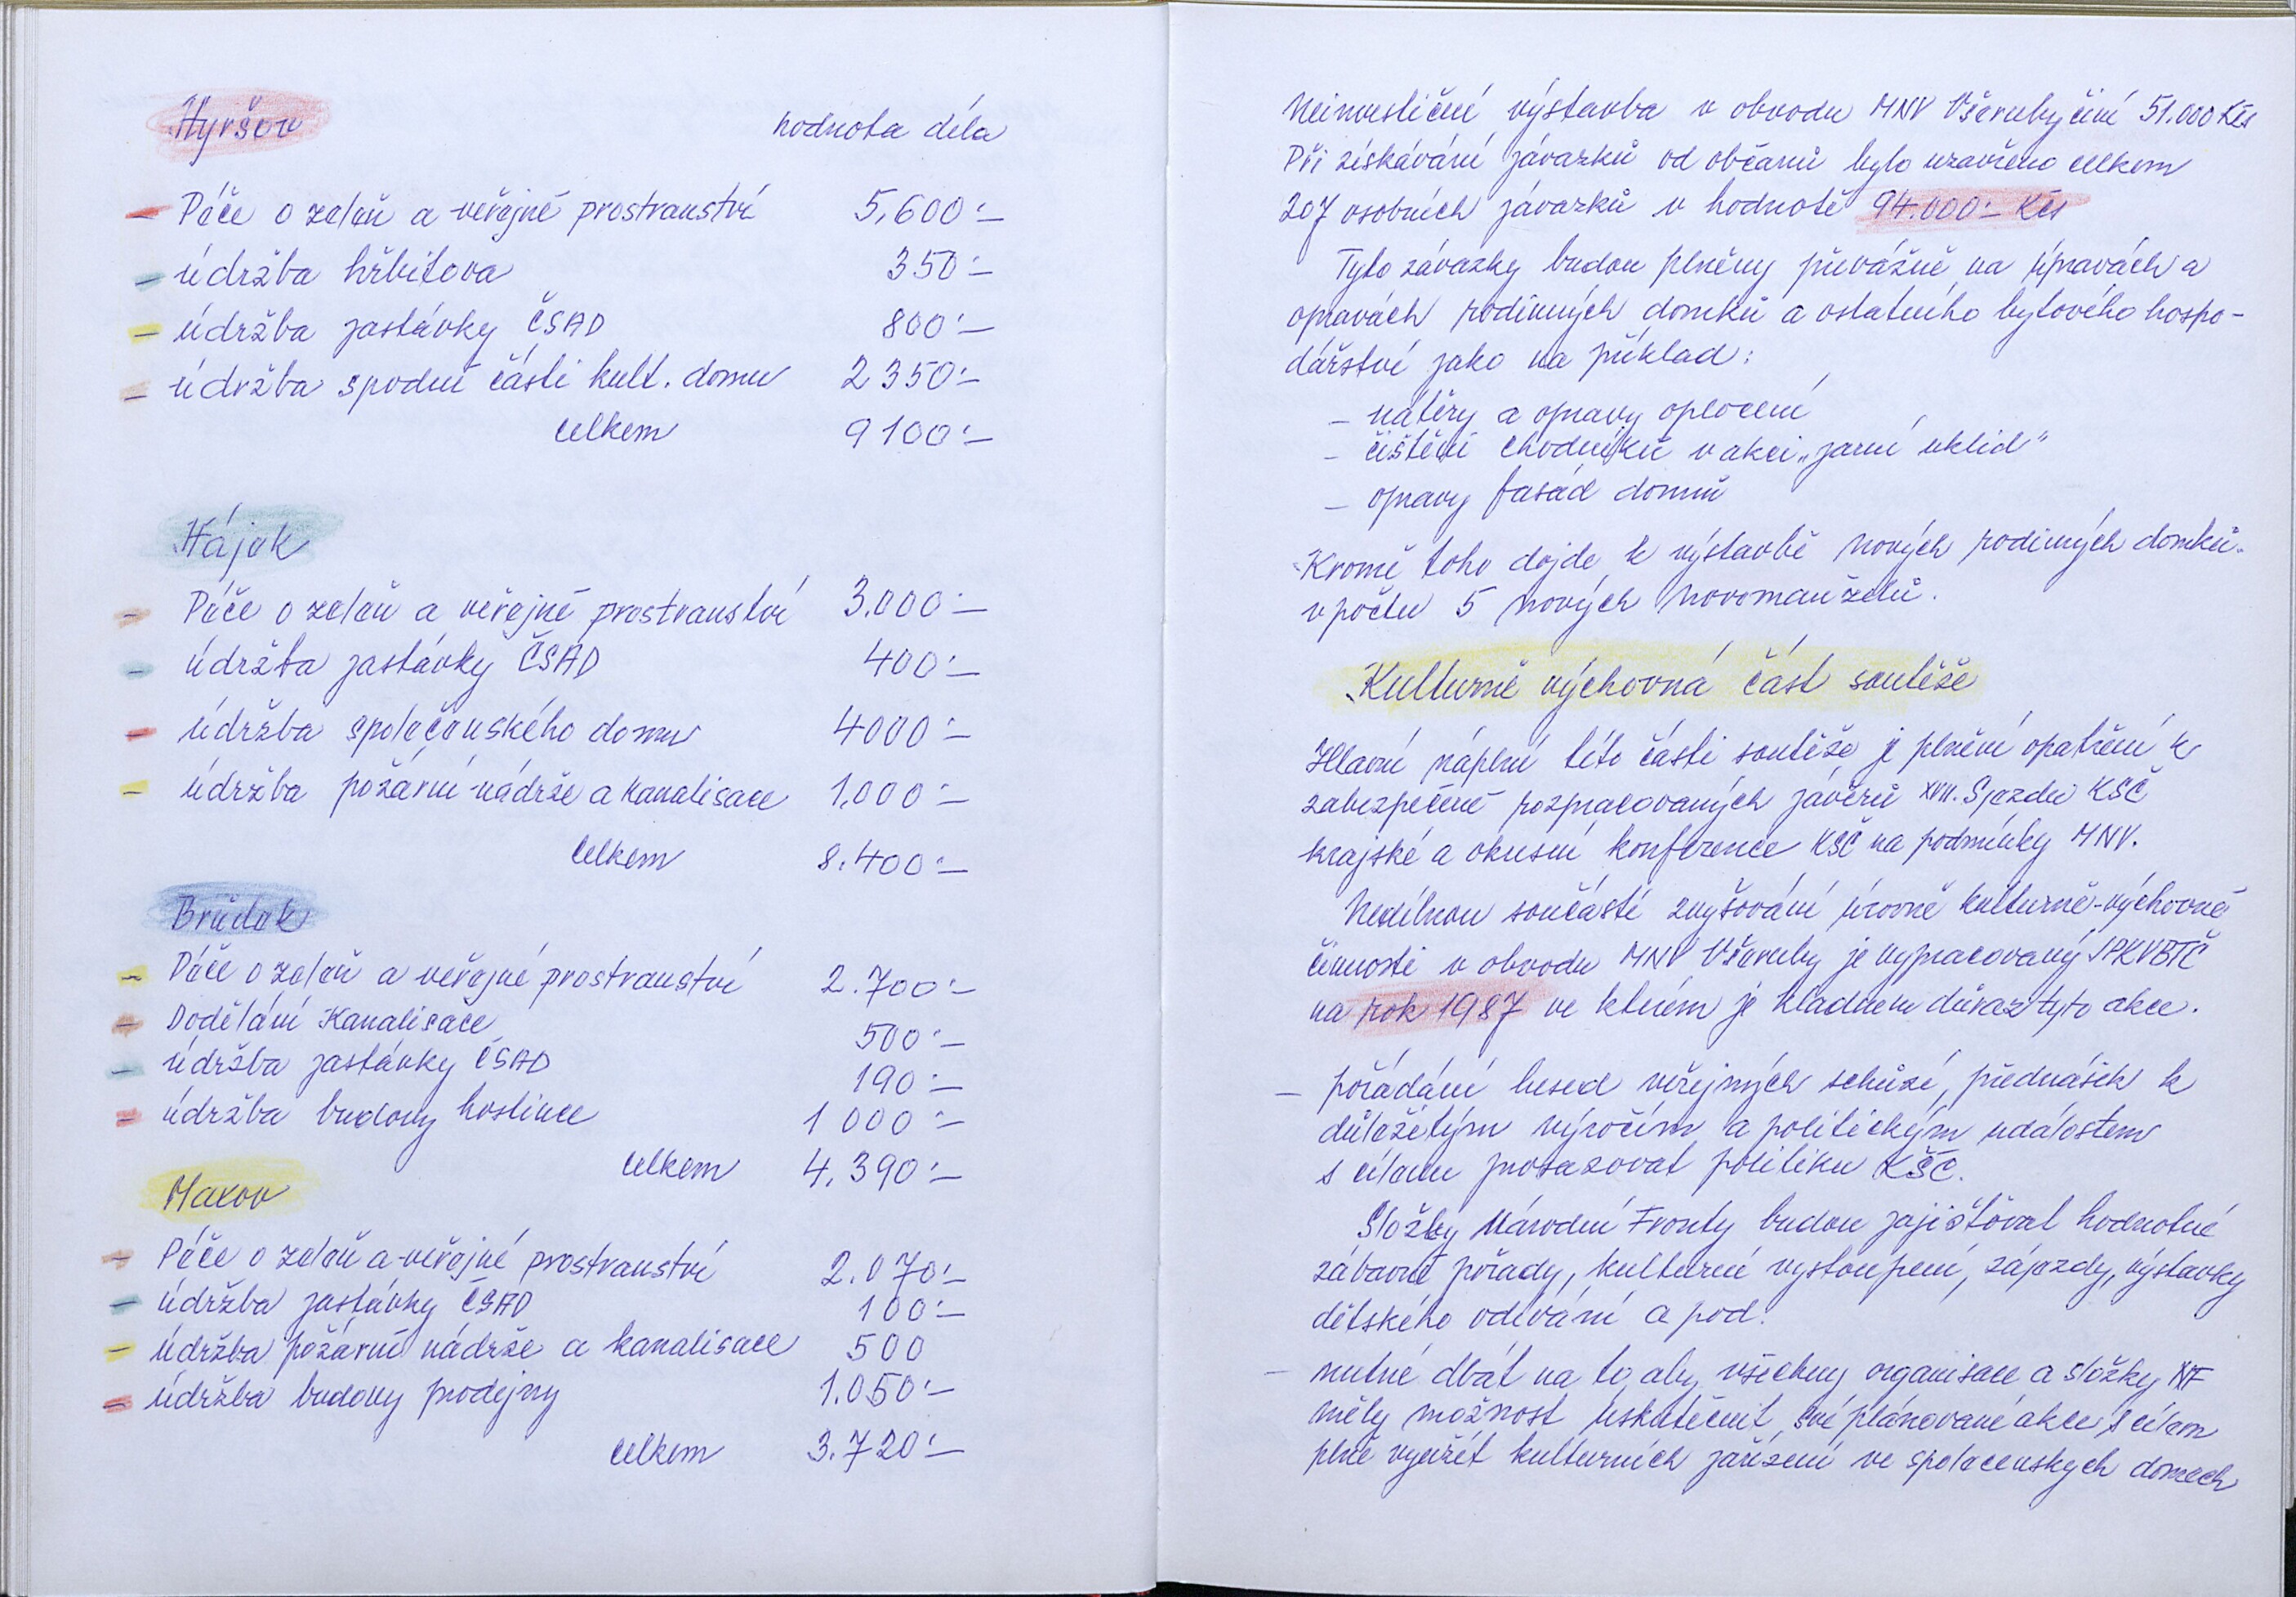 Hyršov hodnota díla
– Péče o zeleň a veřejné prostranství 5,600:–
– údržba hřbitova 350:–
– údržba zastávky ČSAD 800:–
– údržba spodní části kult. domu 2350:–
celkem 9100:–
Hájek
– Péče o zeleň a veřejné prostranství 3.000:–
– údržba zastávky ČSAD 400:–
– údržba společenského domu 4000:–
– údržba požární nádrže a kanalisace 1.000:–
Celkem 8.400:–
Brůdek
– Péče o zeleň a veřejné prostranství 2.700:–
– Dodělání Kanalisace 500:–
– údržba zastávky ČSAD 190:–
– údržba budovy hostince 1 000:–
celkem 4.390:–
Maxov
– Péče o zeleň a veřejné prostranství 2.070:–
– údržba zastávky ČSAD 100:–
– údržba požární nádrže a kanalisace 500
– údržba budovy prodejny 1.050:–
celkem 3.720:–
Neinvestiční výstavba v obvodu MNV Všeruby činí 51.000 Kčs
Při získávání závazků od občanů bylo uzavřeno celkem
207 osobních závazků v hodnotě 94.000:– Kčs
Tyto závazky budou plněny převážně na úpravách a
opravách rodinných domků a ostatního bytového hospo-
dářství jako na příklad:
– nátěry a opravy oplocení
– čištění chodníků v akci „jarní uklid"
– opravy fasád domů
Kromě toho dojde k výstavbě nových rodinných domků.
v počtu 5 nových novomanželů.
Kulturně výchovná část soutěže
Hlavní náplní této části soutěže je plnění opatření k
zabezpečené rozpracovaných závěrů XVII. Sjezdu KSČ
krajské a okresní konference KSČ na podmínky MNV.
Nedílnou součástí zvyšování úrovně kulturně-výchovné
činnosti v obvodu MNV Všeruby je vypracovaný JPKVBTČ
na rok 1987 ve kterém je kladnem důraz tyto akce.
– pořádání besed veřejných schůzí, přednášek k
důležitým výročím a politickým událostem
s cílem prosazovat politiku KŠČ.
Složky Národní Fronty budou zajišťovat hodnotné
zábavné pořady, kulturní vystoupení, zájezdy, výstavky
dětského odívání a pod.
– nutné dbát na to, aby všechny organisace a složky NF
měly možnost uskutečnit své plánované akce s cílem
plně využít kulturních zařízení ve společenskych domech